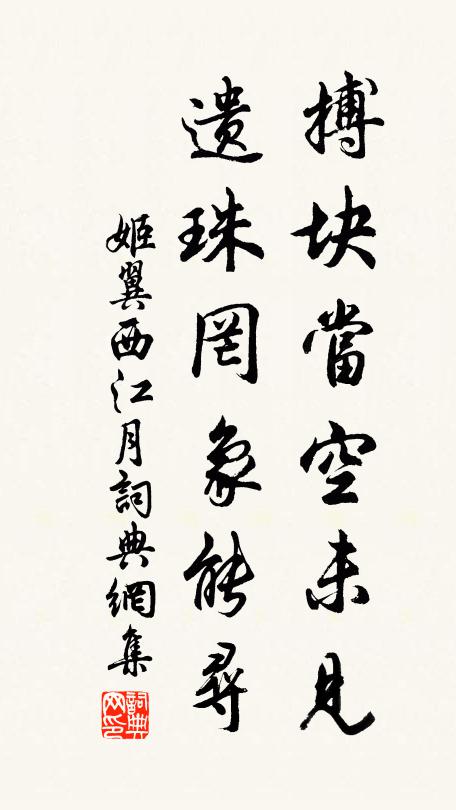 搏块當空未見
遺珠罔象能尋
姬翼西江月詞典網集
詞典網印